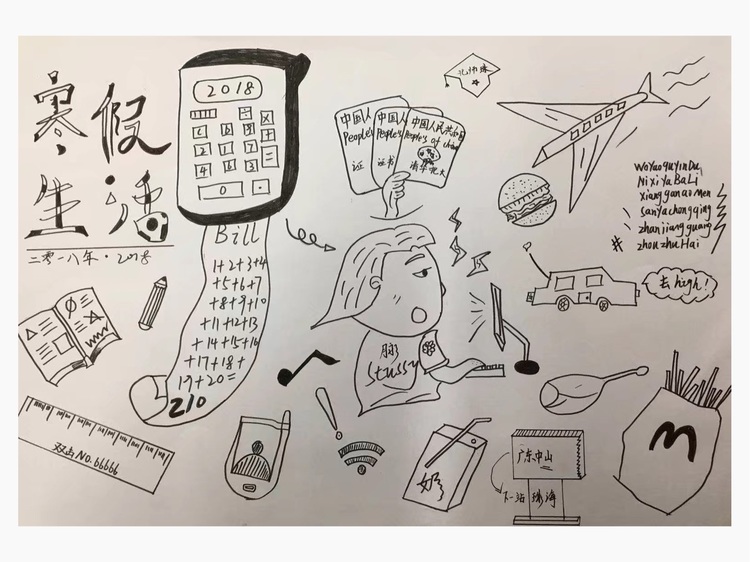 寒假
生活
二零一八年·2018
2018
0
Bill
1+2+3+4
+5+6+7
+8+9+10
+11+12+13
+14+15+16
+17+18+
19+20=
210
中国人
People's
证
中国人
People's
证书
中国人民共和国
People's of china
WoYaoquYinDu
NiXiYaBaLi
xiangganaoMen
sanYachongqing
zhanjiangguang
zhouzhuHai
去high!
stussy
双击No.66666
奶
广东中山
下一站 珠海
M